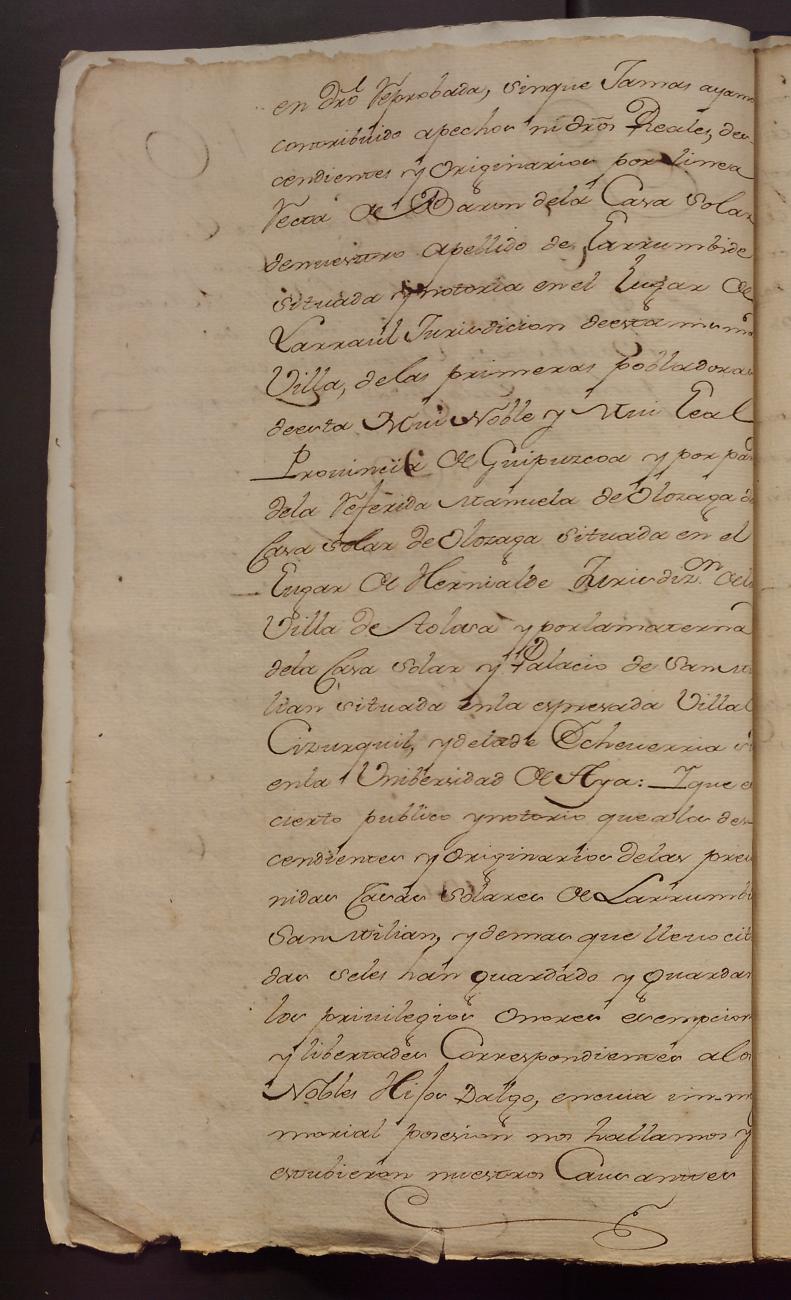 en dro Reprobada, sinque Jamas ayam
contribuido apechos ni dros Reales, des-
cendientes y Originarios por linea
Recta de Baron dela Casa Solar
denuestro apellido de Larrumbide
situada y notoria en el Lugar de
Larraul Jurisdicion deesta misma
Villa, delas primeras pobladoras
deesta Mui Noble y Mui Leal
Provincia de Guipuzcoa y por par
dela Referida Manuela de Olozaga de
Casa Solar de Olozaga situada en el
Lugar de Hernialde Jurisdizon dela
Villa de Tolosa y porlamaterna
dela Casa Solar y Palacio de San Mi
lian situada enla espresada Villa
Cizurquil, ydelade Echeverria si
enla Unibersidad de Aya: Yque e
cierto publico ynotorio que alos des-
cendientes y Originarios delas preve
nidas Casas Solares de Larrumbi
San Milian, ydemas que llevo cit
das seles hán guardádo y guardan
los privilegios Onores esempcion
y libertades Correspondientes alo
Nobles Hijos Dalgo, encuia imm
morial posesion nos hallamos y
estubieron nuestros Causantes